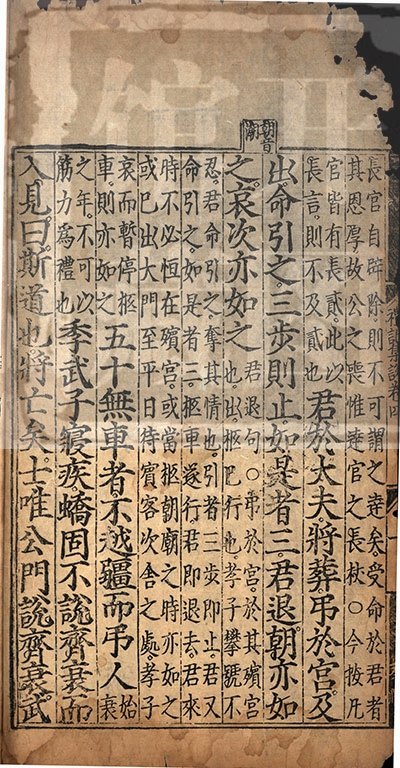 禮記集說卷四
長官自辟除則不可謂之達矣受命於君者
其恩厚故公之喪惟達官之長杖○今按凡
官皆有長貳此以
長言則不及貳也
君於大夫將葬弔於宮及
出命引之三步則止如是者三君退朝亦如
朝音潮
之哀次亦如之
君退句○弔於宮於其殯宮
也出柩已行也孝子攀號不
忍君命引之奪其情也引者三步即止君又
命引之如是者三柩車遂行君即退去君來
時不必恒在殯宮或當柩朝廟之時亦如之
或已出大門至平日待賓客次舍之處孝子
哀而暫停柩
車則亦如之
五十無車者不越疆而弔人
始衰
之年不可以
筋力爲禮也
季武子寢疾蟜固不說齊衰而
入見曰斯道也將亡矣士唯公門說齊衰武